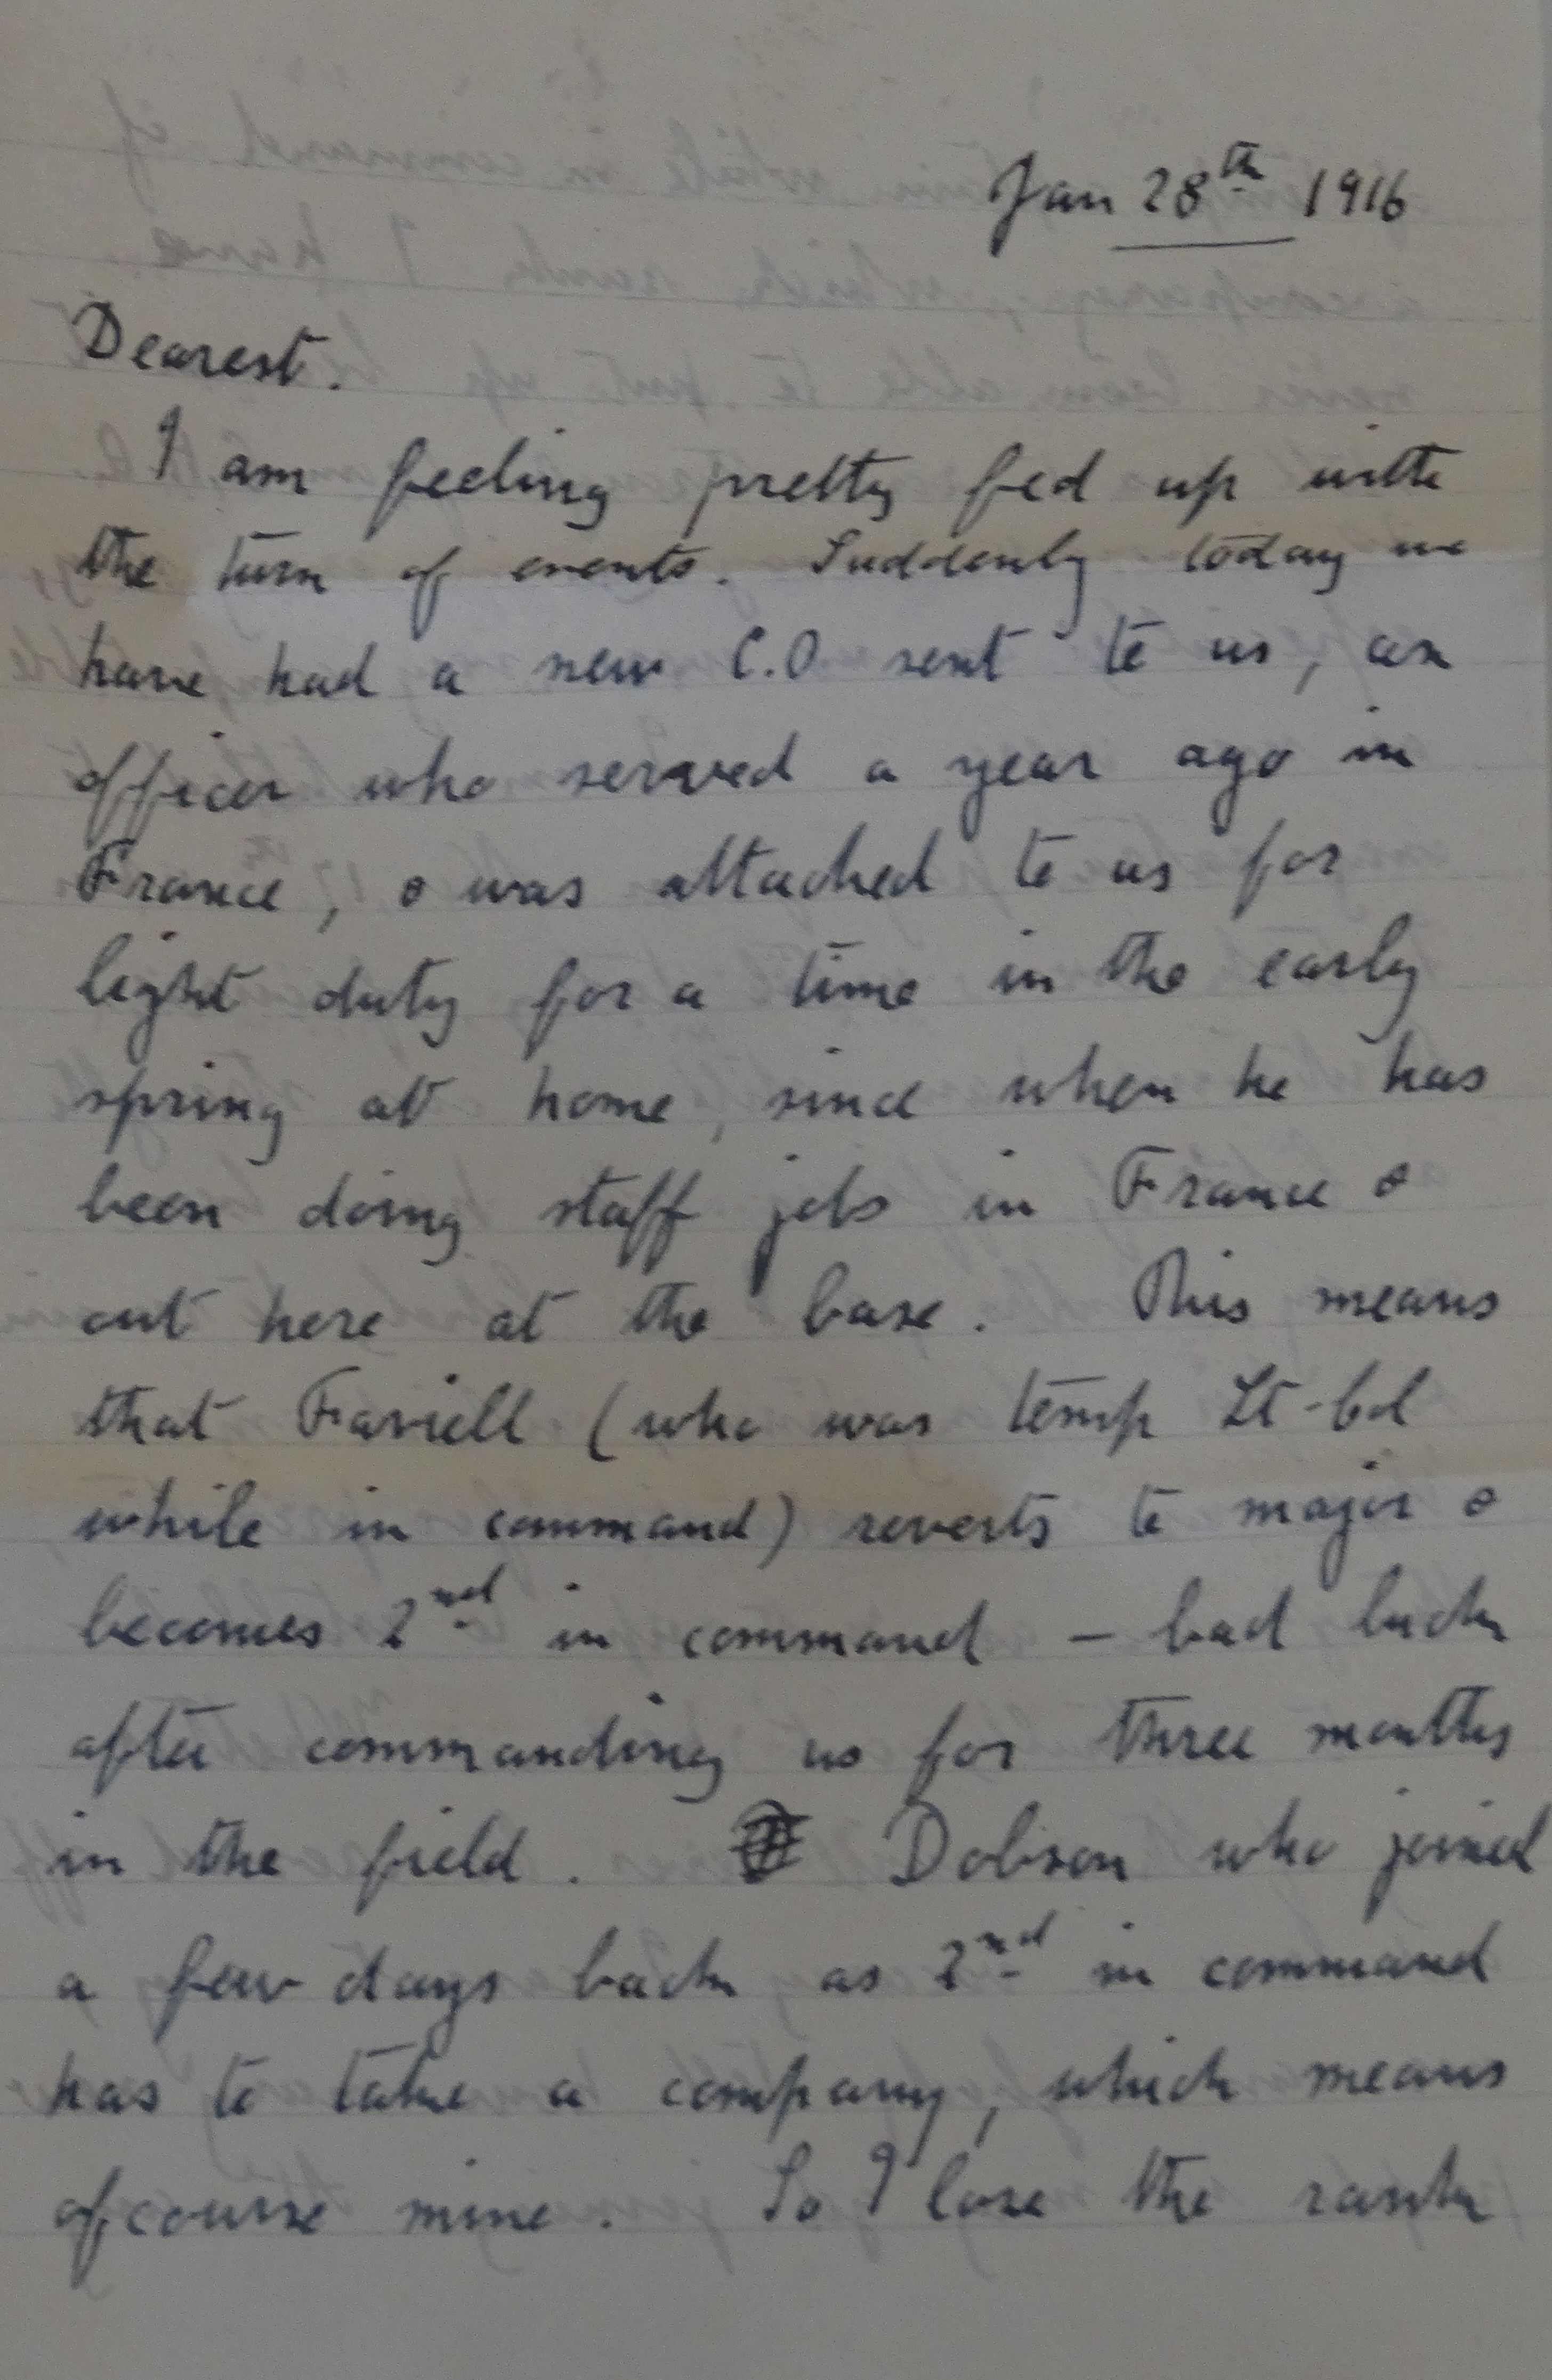 Jan 28th 1916
Dearest.
I am feeling pretty fed up with
the turn of events. Suddenly today we
have had a new C.O sent to us, an
officer who served a year ago in
France, & was attached to us for
light duty for a time in the early
spring at home, since when he has
been doing staff jobs in France &
out here at the base. This means
that Farviell (who was temp Lt-Col
while in command) reverts to major &
becomes 2nd in command – bad luck
after commanding us for three months
in the field. Dobson who joined
a few days back as 2nd in command
has to take a company, which means
ofcourse mine. So I lose the rank